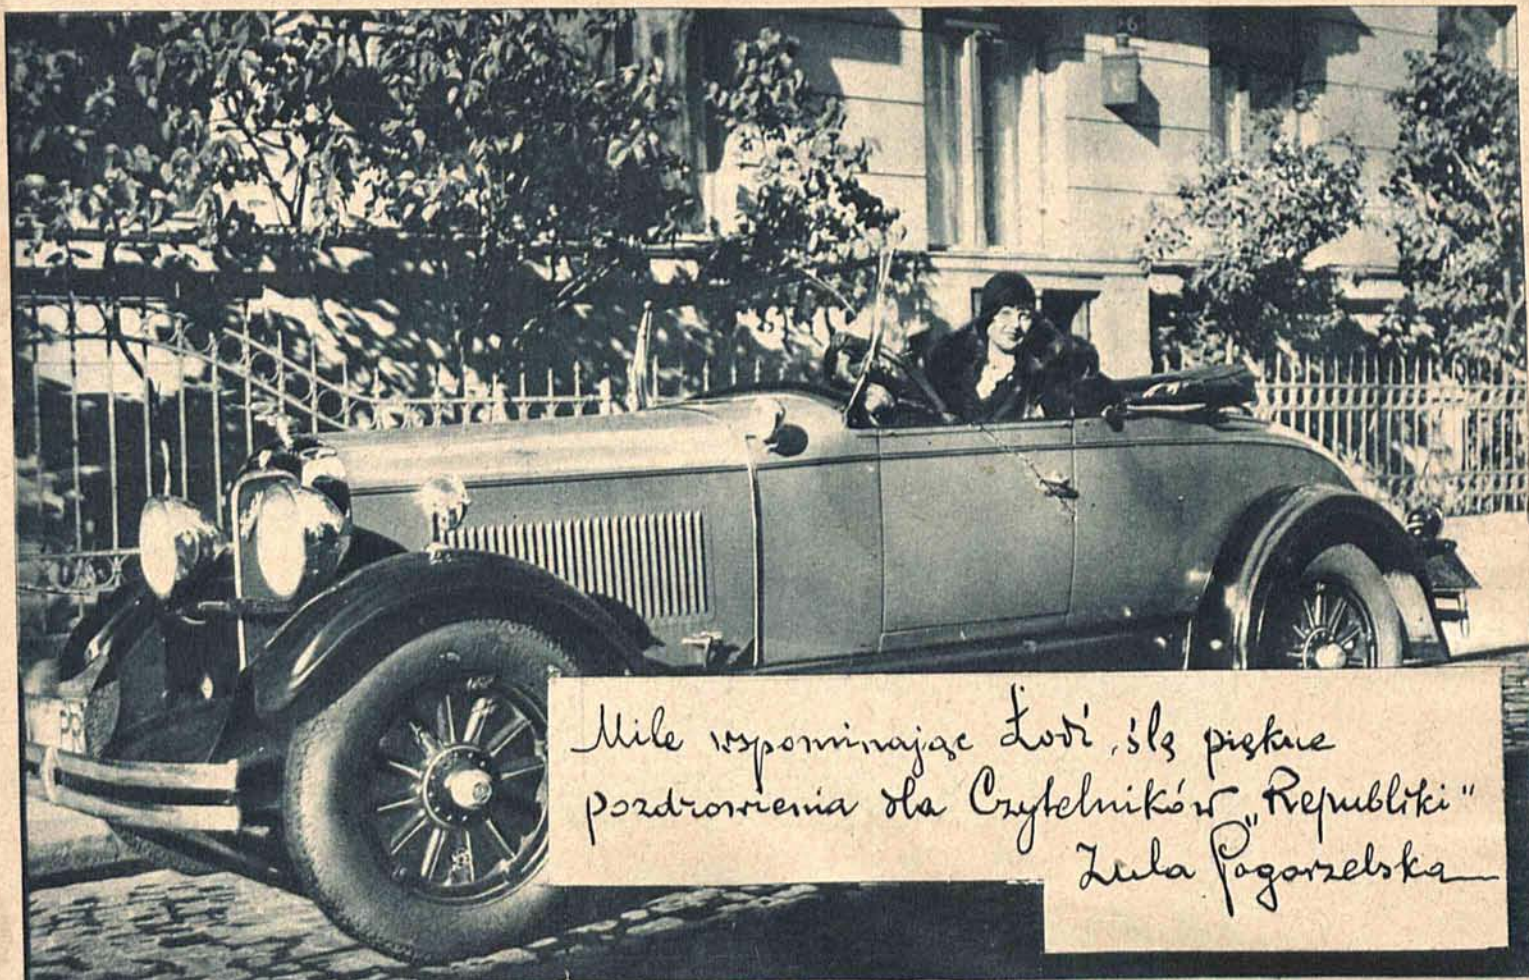 Mile wspominając Łódź, ślę piękne
pozdrowienia dla Czytelników „Republiki"
Zula Pogorzelska